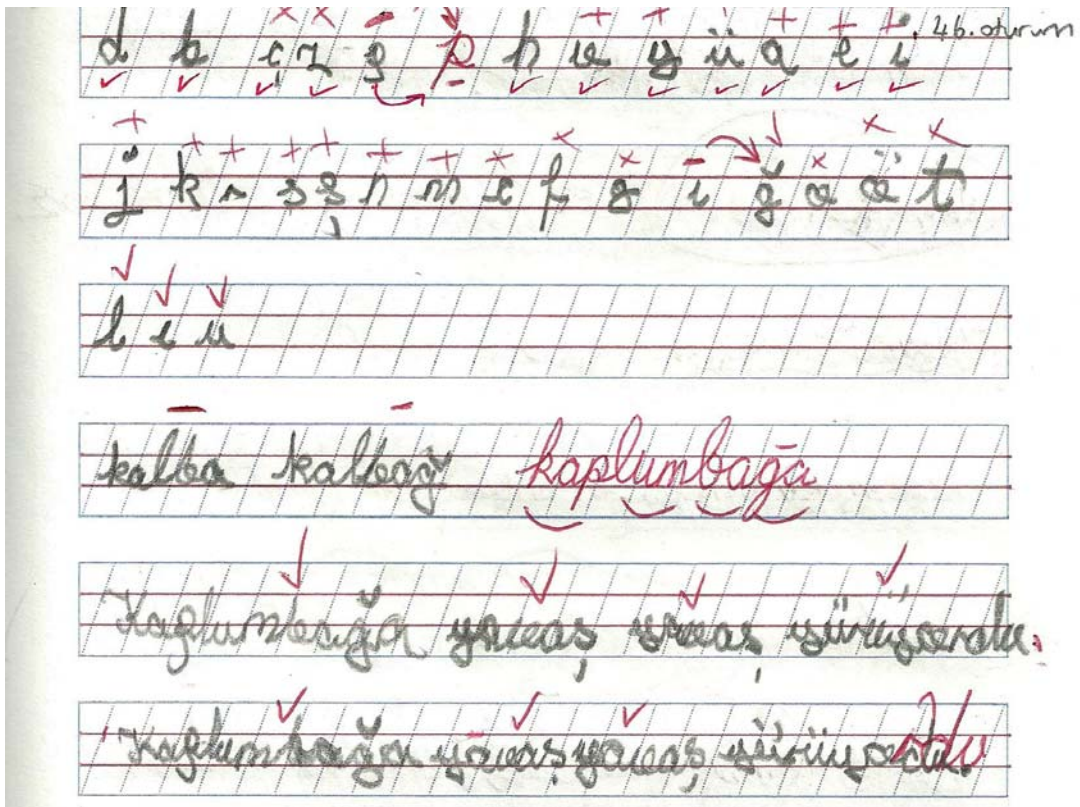 46. oturum
d b ç z g p h v y ü a e i
j k r s ş n m c f g i ğ o ö t
l ı u
kalba kalbağ kaplumbağa
Kaplumbağa yavaş yavaş yürüyordu.
Kaplumbağa yavaş yavaş yürüyordu